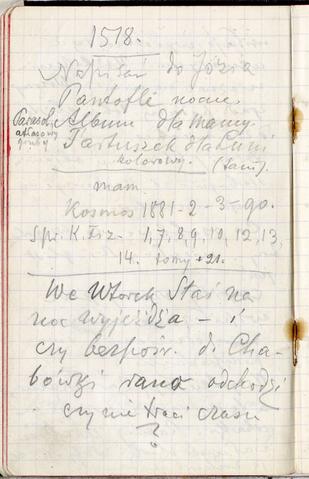 1518.
Napisać do Józia
Pantofle nocne
Parasol Album dla Mamy.
atłasowy Fartuszek dla Luni
gruby kolorowy. (tani).
mam.
Kosmos 1881-2-3-90.
Spr. K. Fiz. 1,7,8,9,10,12,13,
14. tomy + 21.
We Wtorek Staś na
noc wyjeżdża – i
czy bezpośr. do Cha-
bówki rano odchodzi
czy nie traci czasu
?